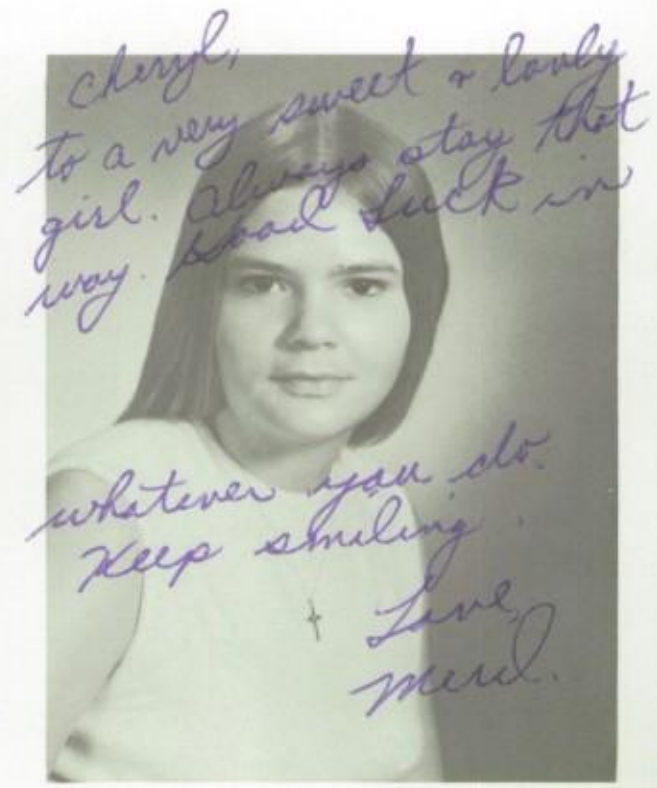 Cheryl,
to a very sweet & lovly
girl. Always stay that
way. Good Luck in
whatever you do.
Keep smiling.
Love,